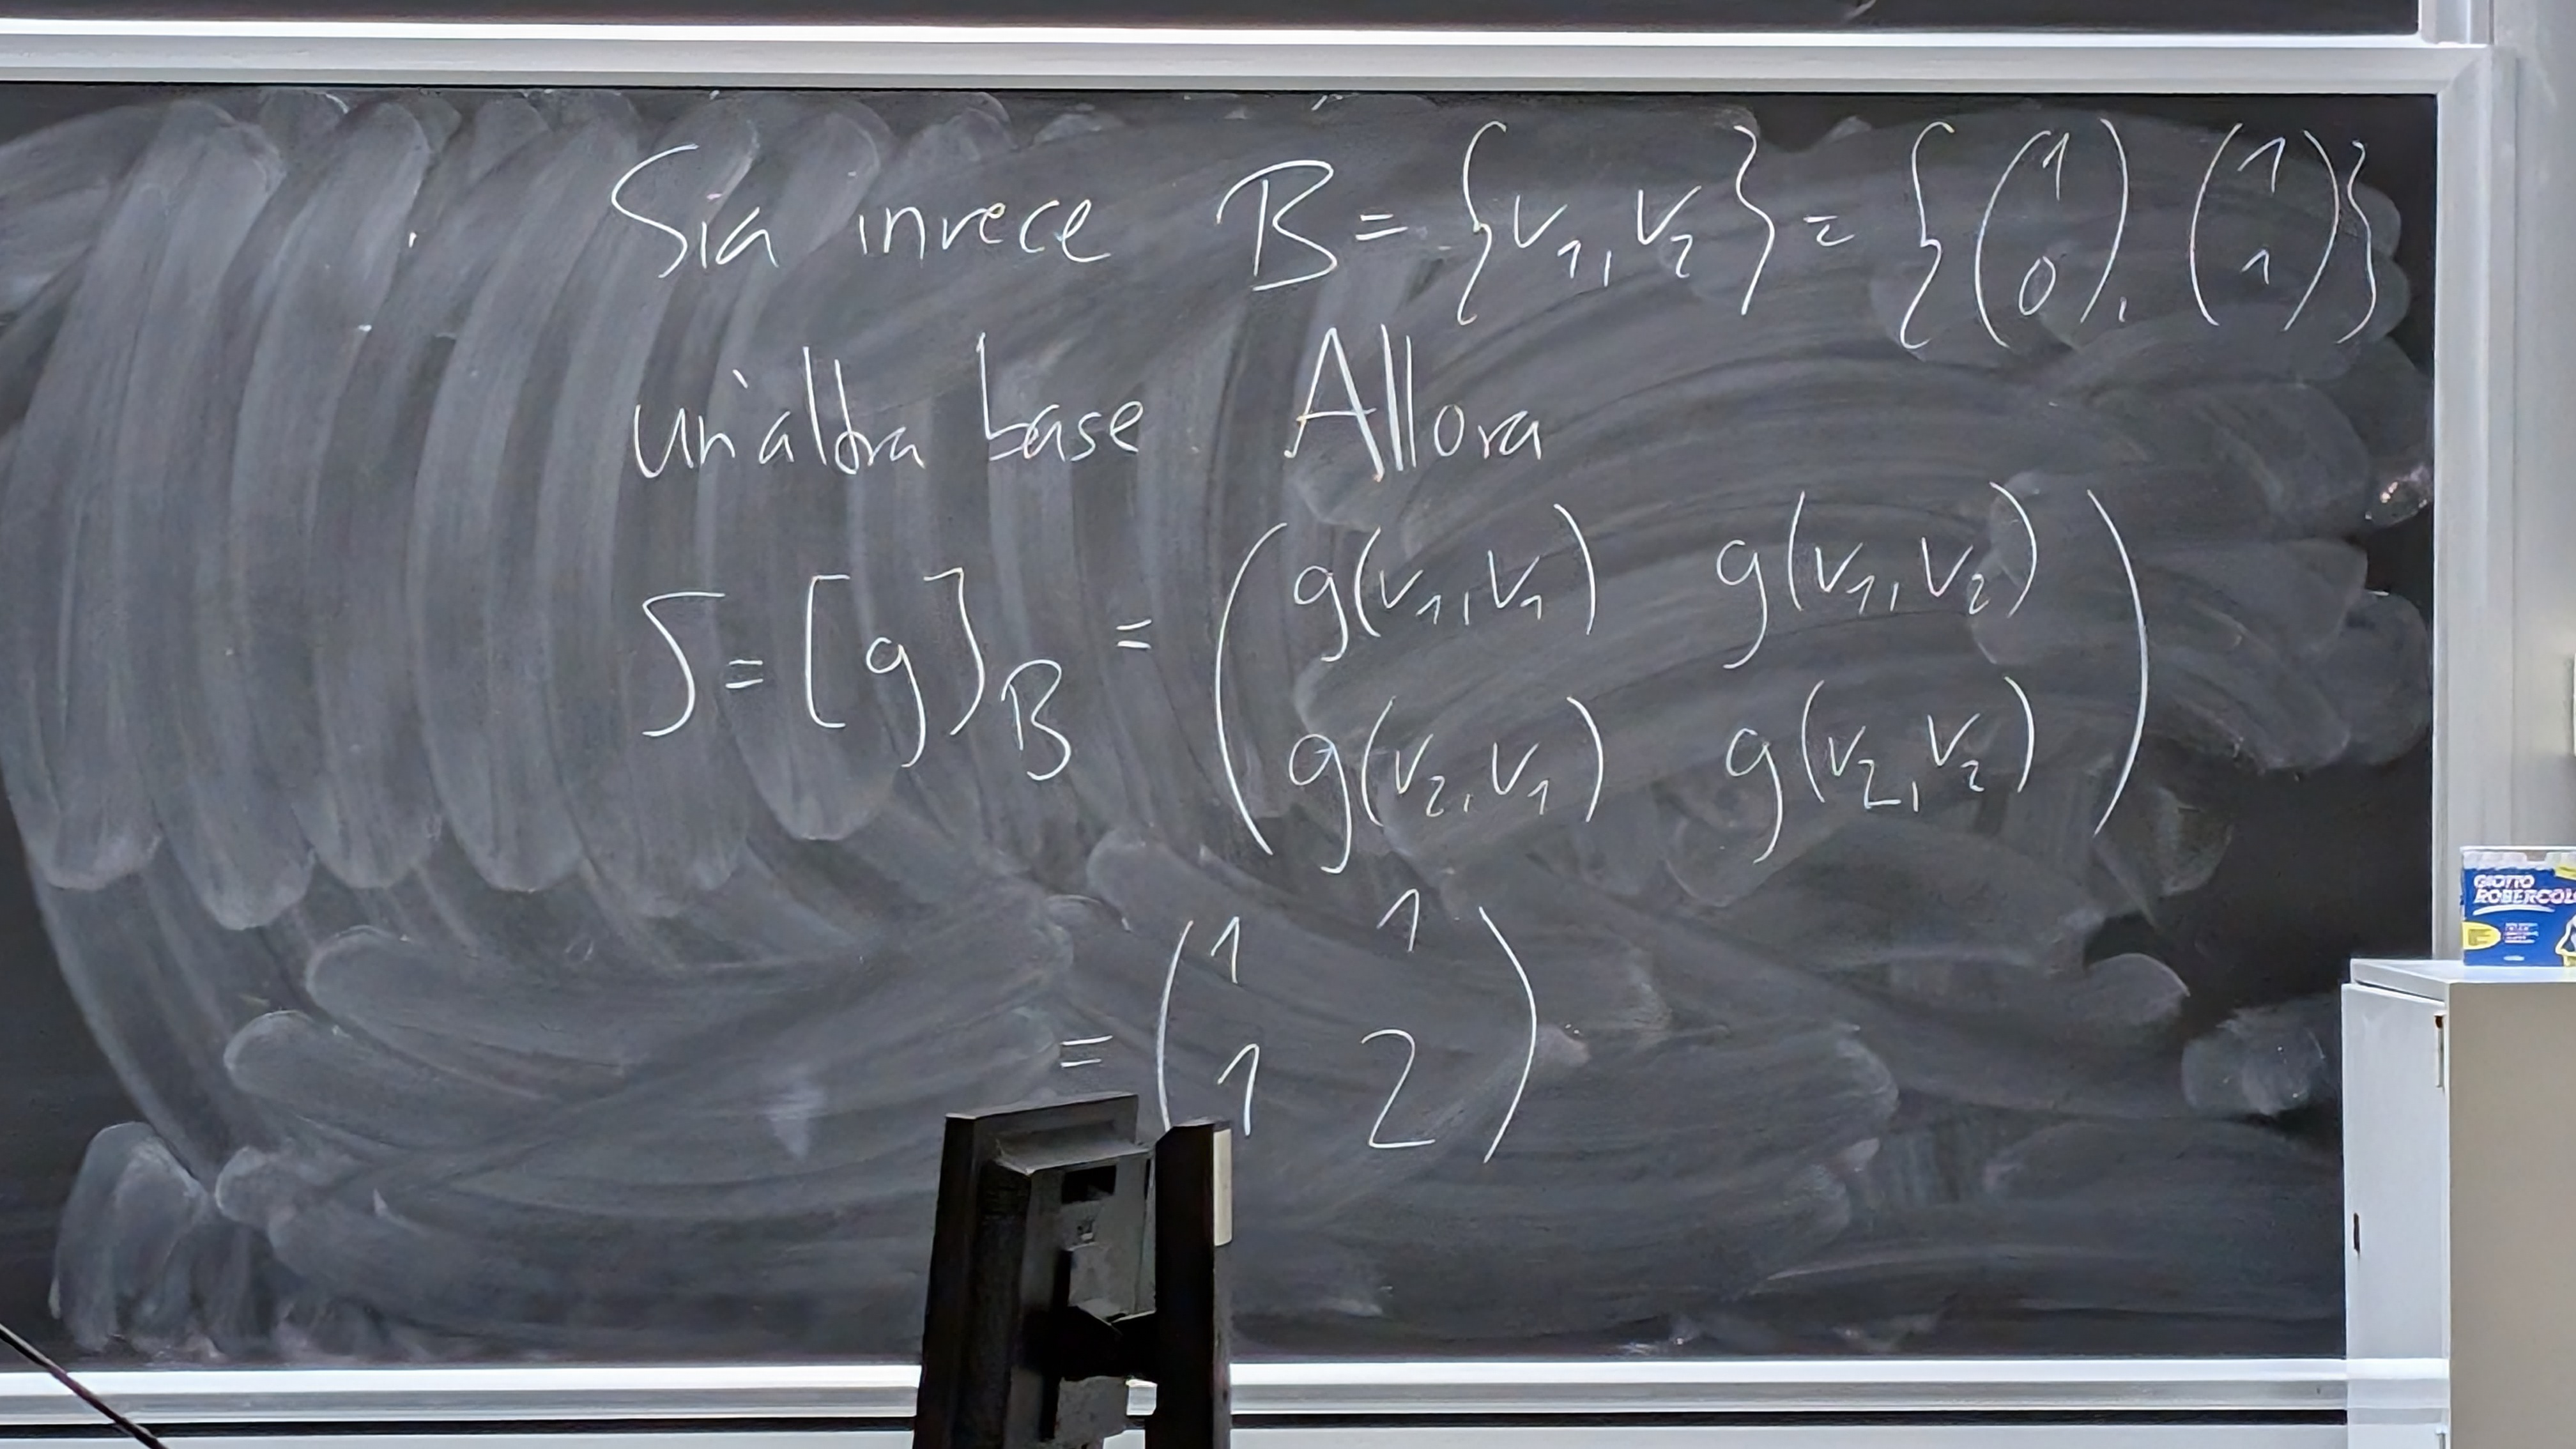 Sia invece B = {v₁, v₂} = { (1 0), (1 1) }
un'altra base Allora
S = [g]_B = ( g(v₁,v₁) g(v₁,v₂)
g(v₂,v₁) g(v₂,v₂) )
= ( 1 1
1 2 )
GIOTTO
ROBERCOL